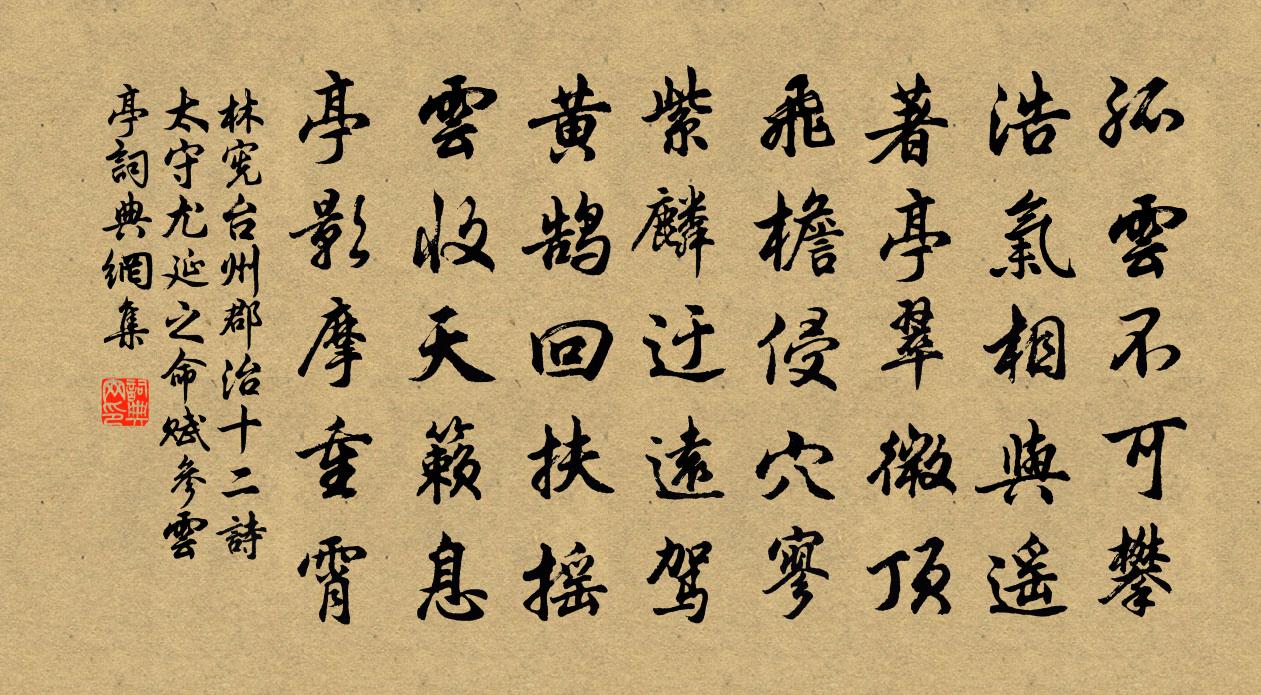 孤雲不可攀
浩氣相與遥
著亭翠微頂
飛檐侵穴寥
紫麟迂遠駕
黄鹄回扶摇
雲收天籟息
亭影摩重霄
林宪台州郡治十二詩
太守尤延之命赋参雲
亭詞典網集
詞典网印